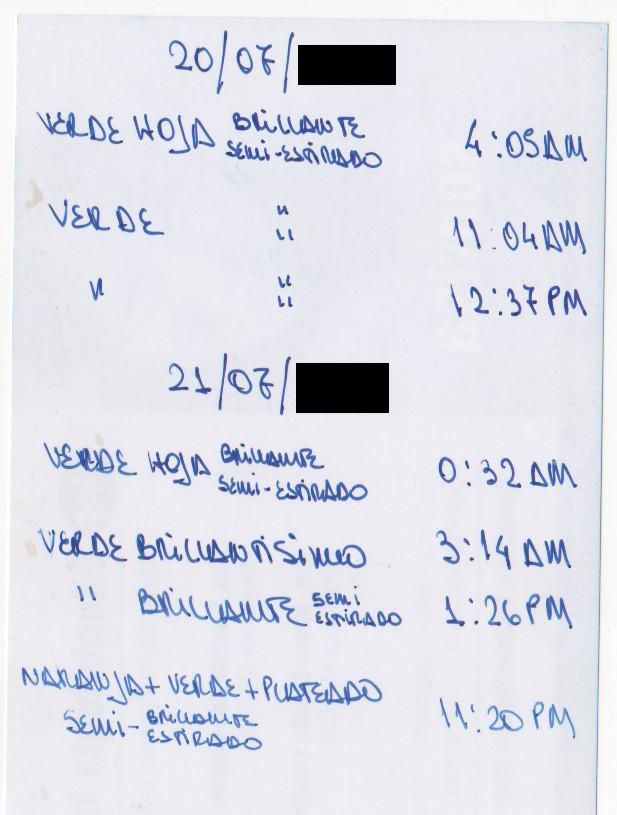 20/07/
VERDE HOJA BRILLANTE SEMI-ESTIRADO 4:05AM
VERDE " " 11:04AM
" " " 12:37PM
21/07/
VERDE HOJA BRILLANTE SEMI-ESTIRADO 0:32AM
VERDE BRILLANTISIMO 3:14AM
" BRILLANTE SEMI ESTIRADO 1:26PM
NARANJA + VERDE + PLATEADO
SEMI- BRILLANTE ESTIRADO 11:20PM